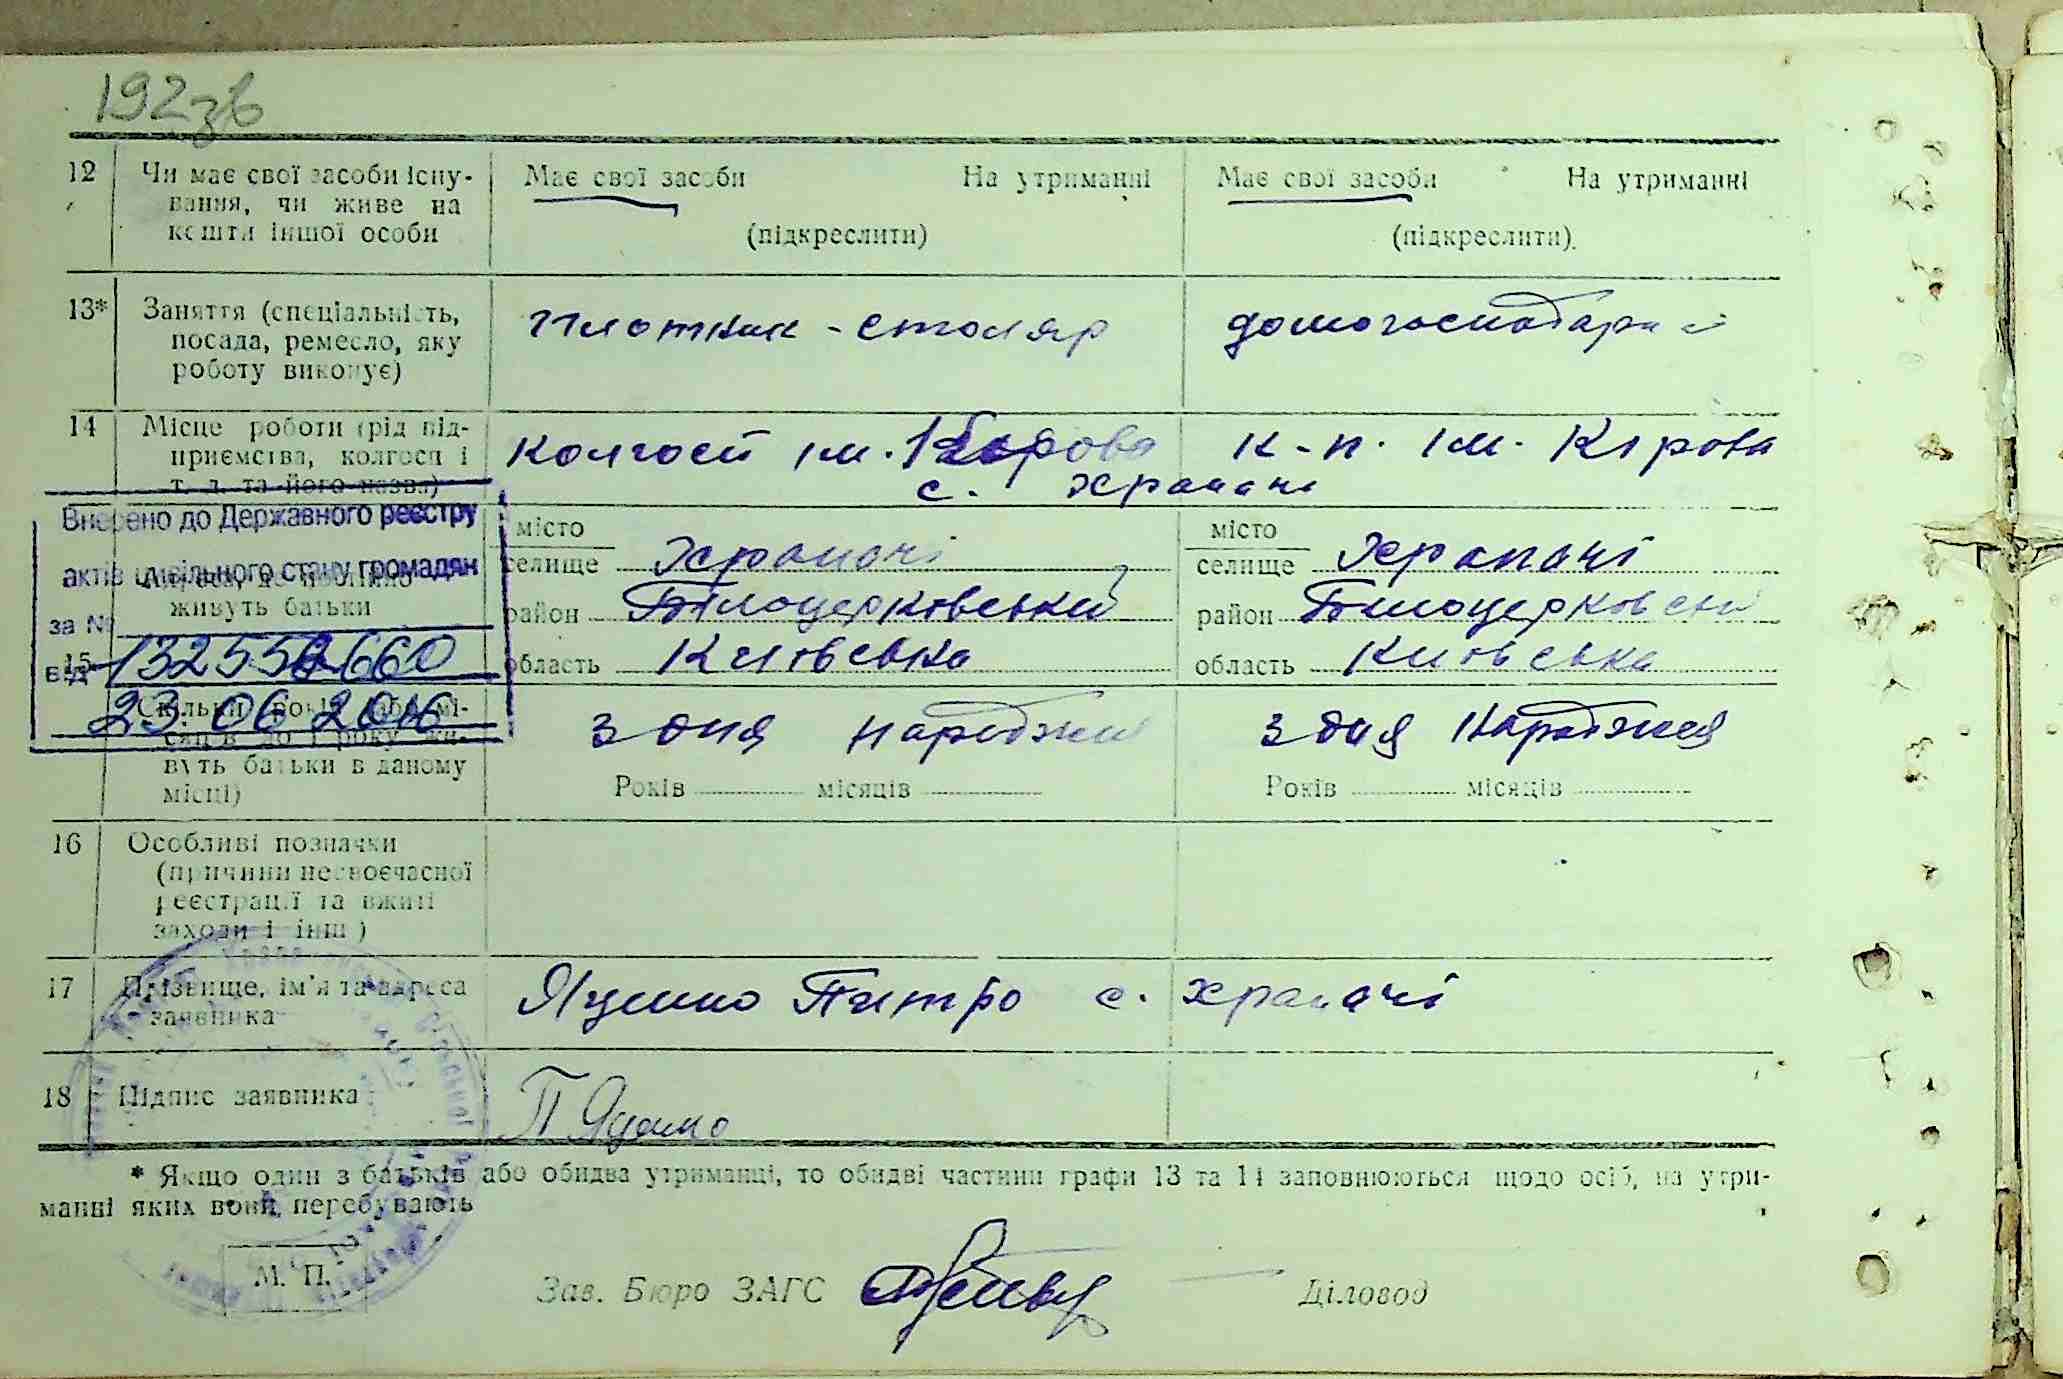 192зв
12 Чи має свої засоби існу- Має свої засоби На утриманні Має свої засоби На утриманні
вання, чи живе на
кошти іншої особи (підкреслити) (підкреслити).
13* Заняття (спеціальність, плотник - столяр домогосподарка
посада, ремесло, яку
роботу виконує)
14 Місце роботи (рід під- колгосп ім. Кірова к-п. ім. Кірова
приємства, колгосп і
т. д. та його назва) с. Храпачі
Внесено до Державного реєстру
актів цивільного стану громадян
за №
від 132550660
23.06.2016
15 місто місто
селище Храпачі селище Храпачі
живуть батьки район Білоцерковський район Білоцерковськ
область Київська область Київська
Скільки років або мі- з дня народжен з дня Народження
сяців до 1 року жи-
вуть батьки в даному Років місяців Років місяців
місці)
16 Особливі позначки
(причини несвоєчасної
реєстрації та вжиті
заходи і інш)
17 Прізвище, ім'я та адреса Яценко Питро с. Храпачі
заявника
18 Підпис заявника П Яценко
* Якщо один з батьків або обидва утриманці, то обидві частини графи 13 та 14 заповнюються щодо осіб, на утри-
манні яких вони перебувають
М. П. Зав. Бюро ЗАГС Діловод